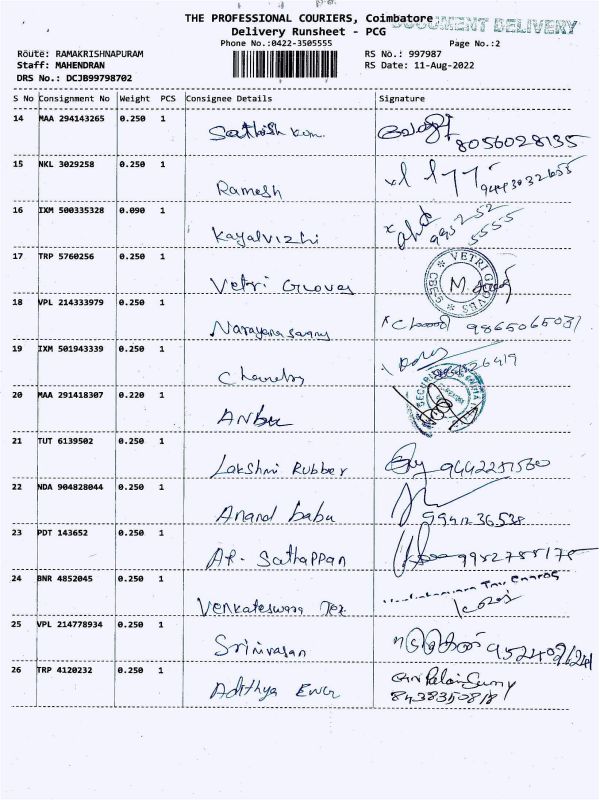 THE PROFESSIONAL COURIERS, Coimbatore
DOCUMENT DELIVERY
Delivery Runsheet - PCG
Phone No.:0422-3505555
Page No.:2
Route: RAMAKRISHNAPURAM
RS No.: 997987
Staff: MAHENDRAN
RS Date: 11-Aug-2022
DRS No.: DCJB99798702
S No Consignment No Weight PCS Consignee Details Signature
14 MAA 294143265 0.250 1 Sathish Kum. 8056028135
15 NKL 3029258 0.250 1 Ramesh 9443032655
16 IXM 500335328 0.090 1 Kayalvizhi 995252 5555
17 TRP 5760256 0.250 1 Vetri Groves VETRI GROVES CBE-5 M.
18 VPL 214333979 0.250 1 9865065031
19 IXM 501943339 0.250 1
20 MAA 291418307 0.220 1 Anbu
21 TUT 6139502 0.250 1 Lakshmi Rubber
22 NDA 904828044 0.250 1 Anand babu
23 PDT 143652 0.250 1 AR. Sathappan
24 BNR 4852045 0.250 1 Venkateswara Tex
25 VPL 214778934 0.250 1 Srinivasan
26 TRP 4120232 0.250 1 Adithya